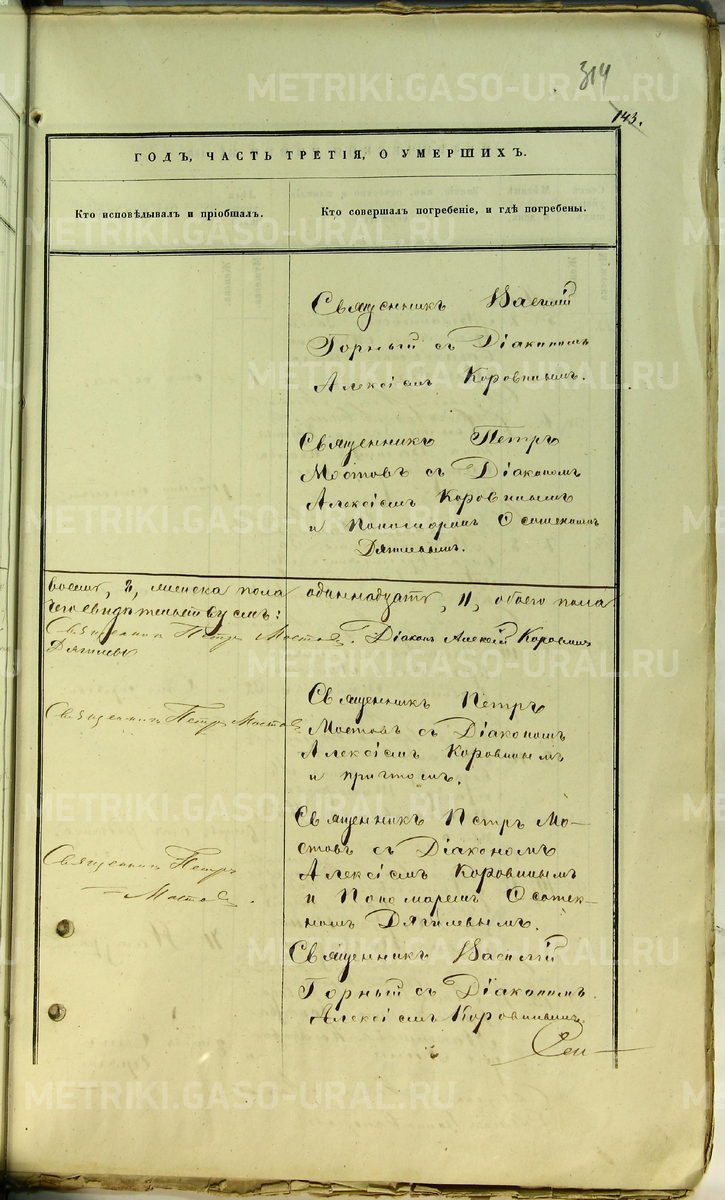 314
143.
ГОДЪ, ЧАСТЬ ТРЕТІЯ, О УМЕРШИХЪ.
Кто исповѣдывалъ и пріобщалъ.
Кто совершалъ погребеніе, и гдѣ погребены.
Священникъ Василій
Горный съ Діакономъ
Алексіемъ Коровинымъ.
Священникъ Петръ
Мостовъ съ Діакономъ
Алексіемъ Коровинымъ
и Пономаремъ
Дягилевымъ.
восемь, 8, женска пола одиннадцать, 11, обоего пола
Священникъ Петръ Мостовъ. Діаконъ Алексій Коровинъ
Дягилевъ
Священникъ Петръ Мостовъ
Священникъ Петръ
Мостовъ съ Діакономъ
Алексіемъ Коровинымъ
и причтомъ.
Священникъ Петръ
Мостовъ.
Священникъ Петръ Мо-
стовъ съ Діакономъ
Алексіемъ Коровинымъ
и Пономаремъ
Дягилевымъ.
Священникъ Василій
Горный съ Діакономъ
Алексіемъ Коровинымъ.
METRIKI.GASO-URAL.RU